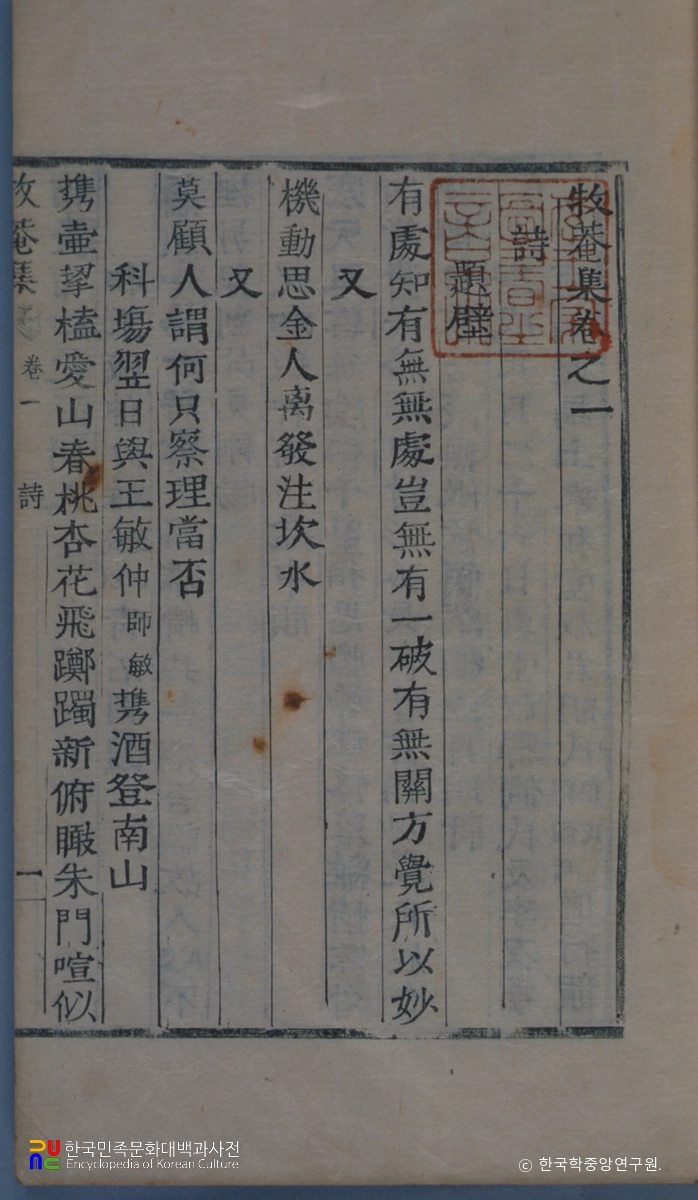 牧菴集卷之一
詩
題壁
有處知有無無處豈無有一破有無關方覺所以妙
又
機動思金人离發注坎水
又
莫顧人謂何只察理當否
科塲翌日與王敏仲師敏携酒登南山
携壷挈榼愛山春桃杏花飛躑躅新俯瞰朱門喧似
牧菴集
卷一
詩
一
한국민족문화대백과사전
Encyclopedia of Korean Culture
© 한국학중앙연구원.